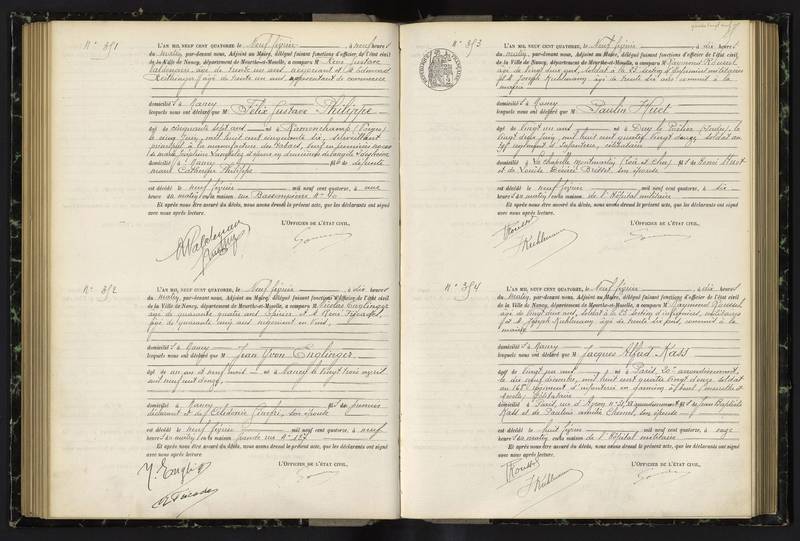 N° 351
L'AN MIL NEUF CENT QUATORZE, le neuf février, à neuf heures
du matin, par-devant nous, Adjoint au Maire, délégué faisant fonctions d'officier de l'état civil
de la Ville de Nancy, département de Meurthe-et-Moselle, a comparu M René Gustave
Valdenaire, âgé de trente un ans, négociant et M Edmond
âgé de trente un ans, représentant de commerce
domiciliés à Nancy
lesquels nous ont déclaré que M Félix Gustave Philippe
âgé de cinquante sept ans né à Ramonchamp (Vosges)
le cinq juin mil huit cent cinquante six, surveillant
principal à la manufacture de tabacs, veuf en premières noces
domicilié à Nancy fils de défunts
est décédé le neuf février mil neuf cent quatorze, à une
heure du matin, en la maison rue Bassompierre N° 40
Et après nous être assuré du décès, nous avons dressé le présent acte, que les déclarants ont signé
avec nous après lecture.
L'OFFICIER DE L'ÉTAT CIVIL,
R Valdenaire
N° 352
L'AN MIL NEUF CENT QUATORZE, le neuf février, à dix heures
du matin, par-devant nous, Adjoint au Maire, délégué faisant fonctions d'officier de l'état civil
de la Ville de Nancy, département de Meurthe-et-Moselle, a comparu M Nicolas Englinger
âgé de quarante quatre ans, épicier et M René
âgé de quarante cinq ans
domiciliés à Nancy
lesquels nous ont déclaré que M Jean Yvon Englinger
âgé de un an et neuf mois né à Nancy le vingt trois avril
mil neuf cent douze,
domicilié à Nancy fils du premier
déclarant et de Célidonie son épouse
est décédé le neuf février mil neuf cent quatorze, à neuf
heures du matin, en la maison grande rue N° 157
Et après nous être assuré du décès, nous avons dressé le présent acte, que les déclarants ont signé
avec nous après lecture.
L'OFFICIER DE L'ÉTAT CIVIL,
N. Englinger
N° 353
L'AN MIL NEUF CENT QUATORZE, le neuf février, à dix heures
du matin, par-devant nous, Adjoint au Maire, délégué faisant fonctions d'officier de l'état civil
de la Ville de Nancy, département de Meurthe-et-Moselle, a comparu M Raymond Roussel
âgé de vingt deux ans, soldat à la 23e section d'infirmiers militaires
et M Joseph Kuhlmann âgé de trente six ans commis à la
mairie
domiciliés à Nancy
lesquels nous ont déclaré que M Paulin Huet
âgé de vingt un ans né à
vingt deux juin, mil huit cent quatre vingt douze, soldat au
régiment d'infanterie, célibataire
domicilié à La Chapelle Montmartin (Loir et Cher) fils de Henri Huet
et de Louise son épouse
est décédé le neuf février mil neuf cent quatorze, à six
heures du matin, en la maison de l'Hôpital militaire
Et après nous être assuré du décès, nous avons dressé le présent acte, que les déclarants ont signé
avec nous après lecture.
L'OFFICIER DE L'ÉTAT CIVIL,
Roussel
J Kuhlmann
N° 354
L'AN MIL NEUF CENT QUATORZE, le neuf février, à dix heures
du matin, par-devant nous, Adjoint au Maire, délégué faisant fonctions d'officier de l'état civil
de la Ville de Nancy, département de Meurthe-et-Moselle, a comparu M Raymond Roussel
âgé de vingt deux ans, soldat à la 23e section d'infirmiers militaires
et M Joseph Kuhlmann âgé de trente six ans, commis à la
mairie
domiciliés à Nancy
lesquels nous ont déclaré que M Jacques Alfred Kass
âgé de vingt un ans né à Paris, 20e arrondissement,
le dix neuf décembre, mil huit cent quatre vingt douze, soldat
au régiment d'infanterie en garnison à Toul (Meurthe et
Moselle) célibataire
domicilié à Paris, fils de Jean Baptiste
Kass et de son épouse
est décédé le huit février mil neuf cent quatorze, à onze
heures du matin, en la maison de l'Hôpital militaire
Et après nous être assuré du décès, nous avons dressé le présent acte, que les déclarants ont signé
avec nous après lecture.
L'OFFICIER DE L'ÉTAT CIVIL,
Roussel
J Kuhlmann